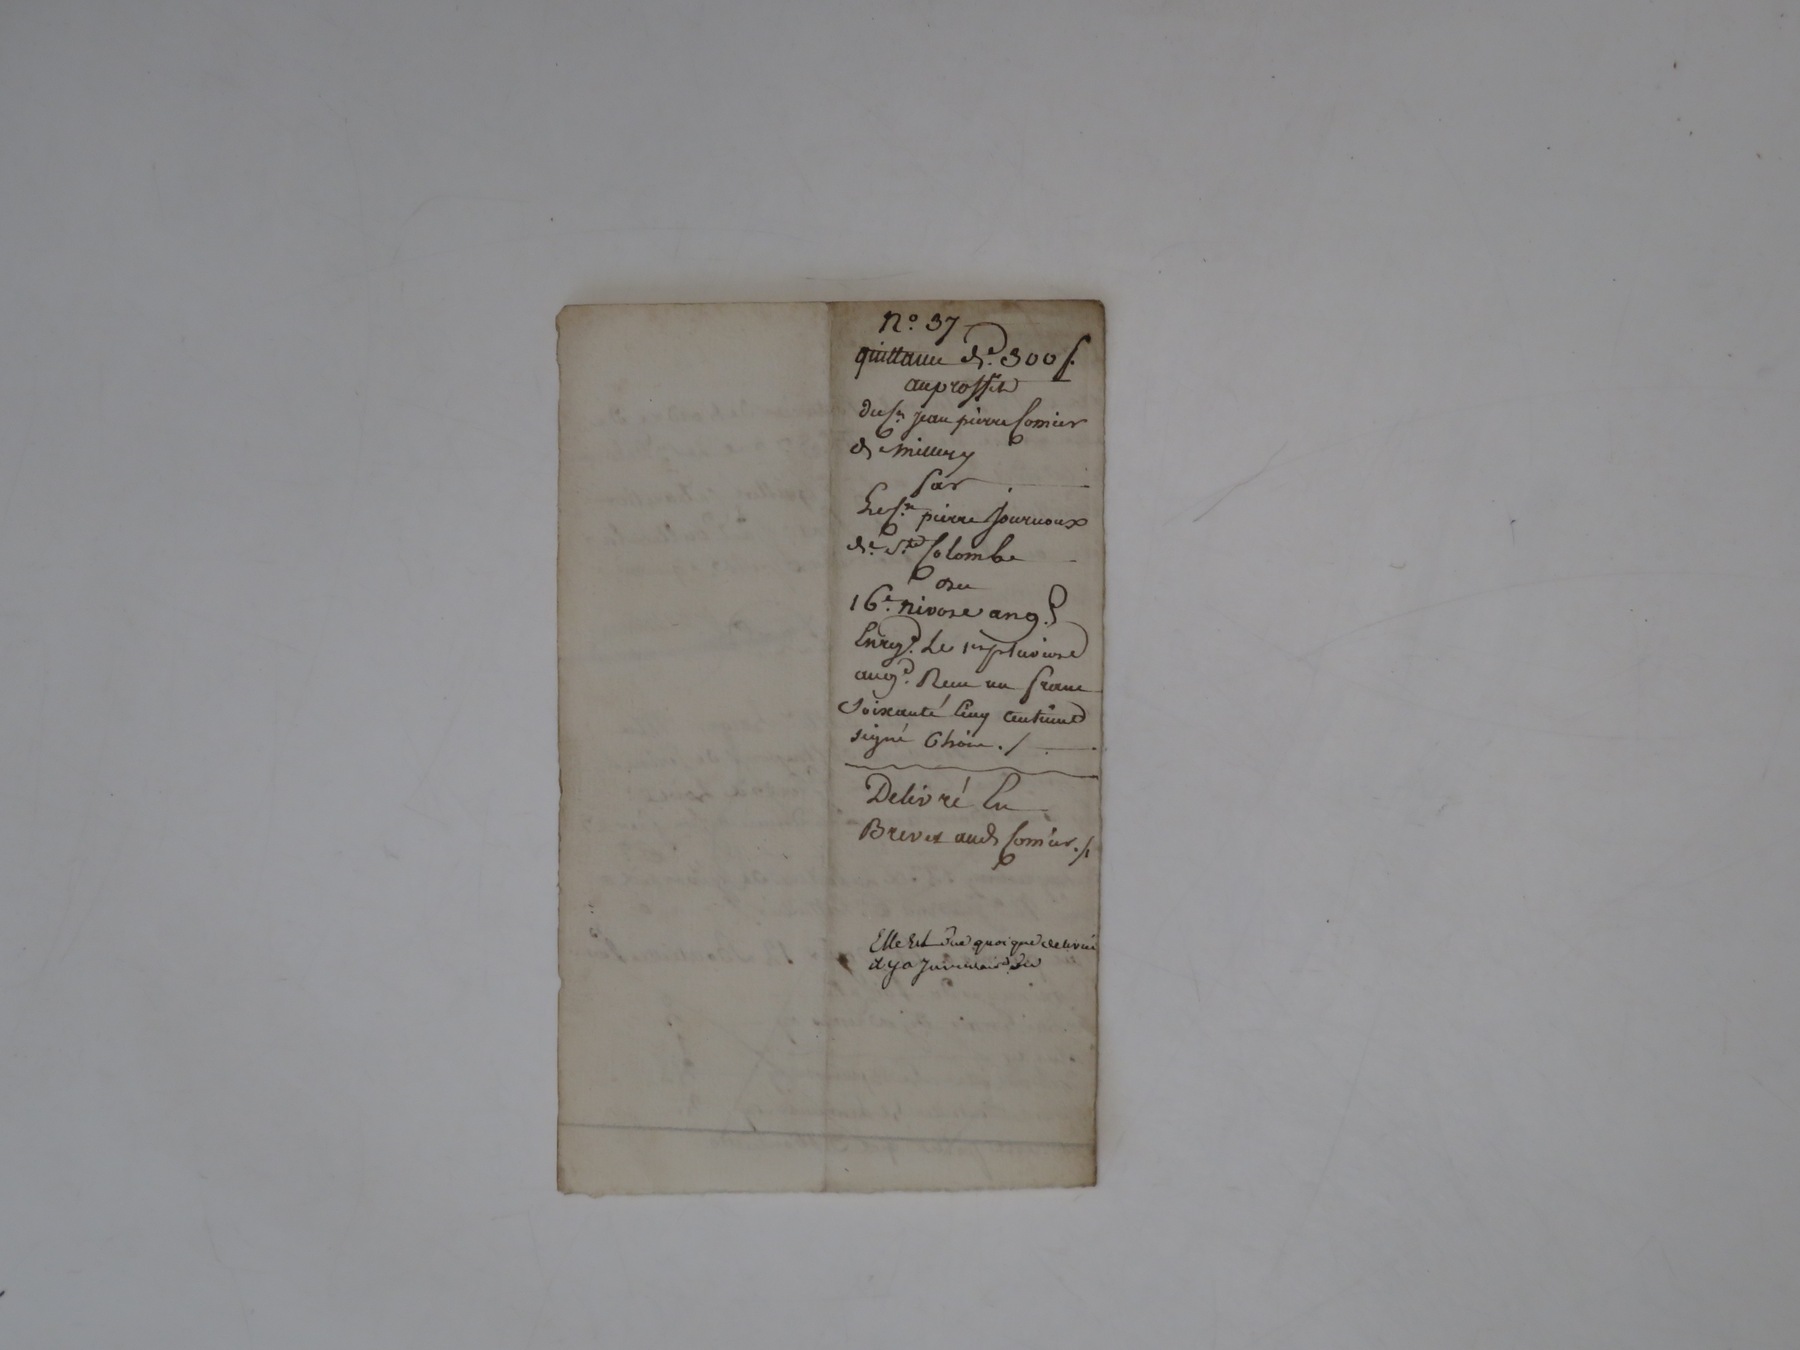 N.o 37
quittance de. 300 f.
au proffit
du Sr jean pierre Comier
de millery
par
Le Sr. pierre Journoux
de. Ste Colombe
du
16e. nivose an 9.e
Enreg.é Le 1er pluviose
an 9e. Recu un franc
soixante Cinq centimes
signé Choin ./
Delivré En
Brevet aud Comier ./
Elle Est due quoique delivrée
il y a